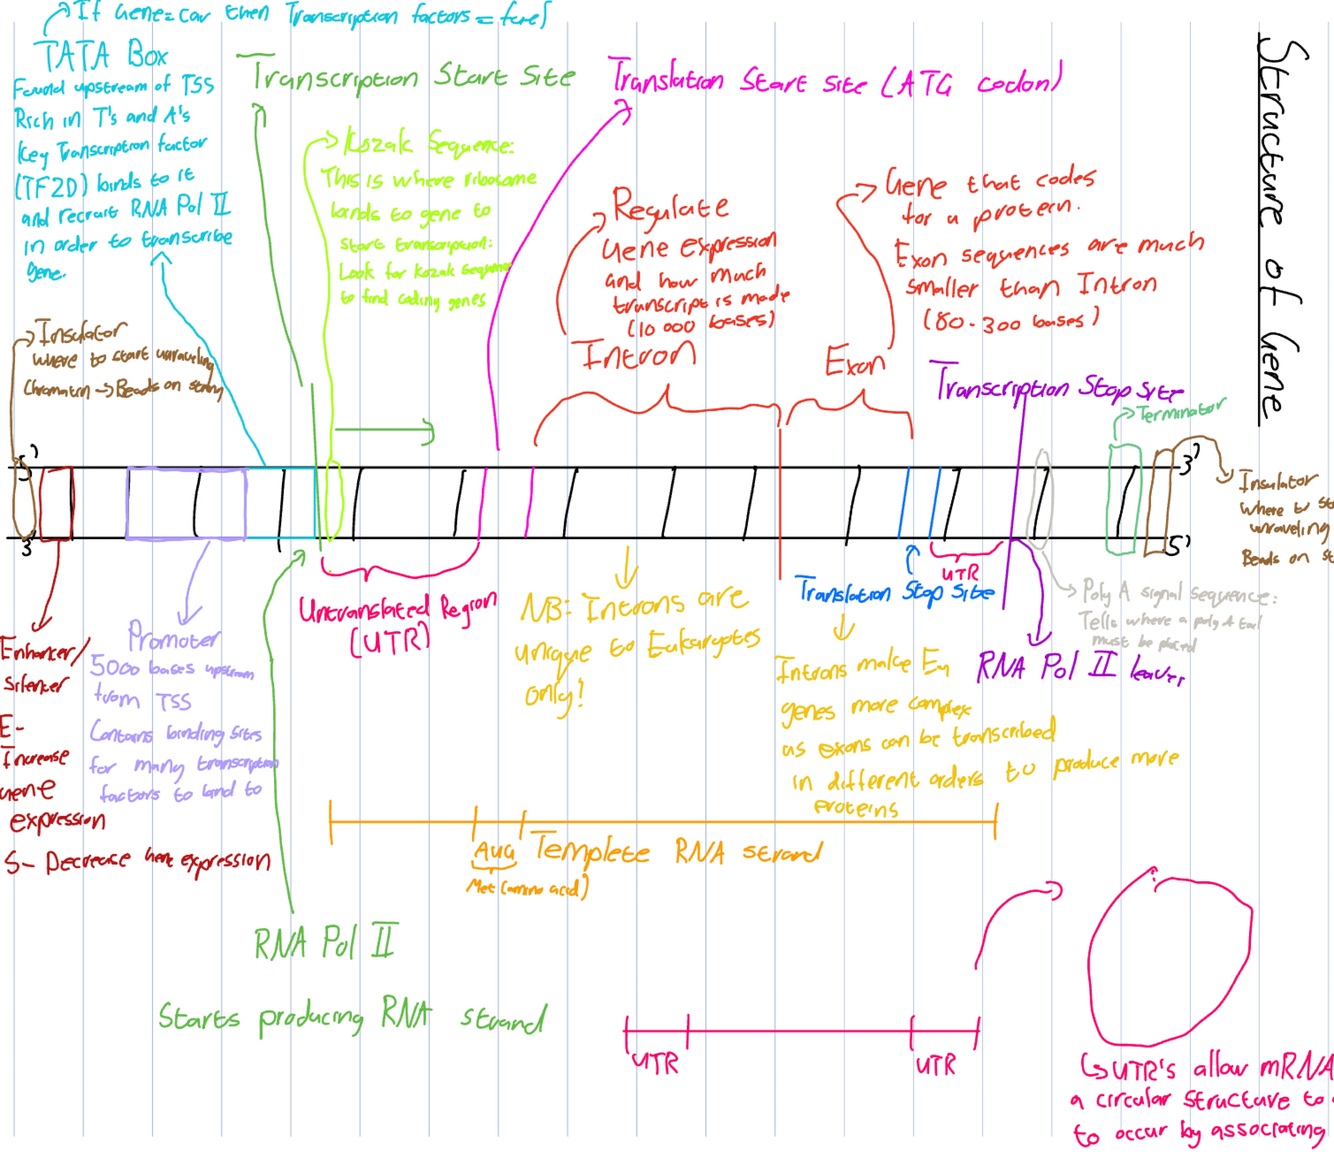 If Gene=car then Transcription factors = fuel
TATA Box
Found upstream of TSS
Rich in T's and A's
Key Transcription factor
(TF2D) binds to it
and recruit RNA Pol II
in order to transcribe
gene.
Transcription Start Site
Translation Start site (ATG codon)
Structure of Gene
Kozak Sequence:
This is where ribosome
binds to gene to
start transcription:
Look for kozak sequence
to find coding genes
Regulate
Gene expression
and how much
transcript is made
(10 000 bases)
Intron
Gene that codes
for a protein.
Exon sequences are much
smaller than Intron
(80-300 bases)
Exon
Insulator
where to start unraveling
Chromatin → Beads on string
Transcription Stop Site
Terminator
5'
3'
3'
5'
Insulator
where to
unraveling
Beads on
Enhancer/
Silencer
E-
Increase
gene
expression
S- Decrease gene expression
Promoter
5000 bases upstream
from TSS
Contains binding sites
for many transcription
factors to bind to
Untranslated Region
(UTR)
NB: Introns are
unique to Eukaryotes
only!
UTR
Translation Stop Site
Poly A signal sequence:
Tells where a poly A tail
must be placed
RNA Pol II leaves
Introns make Eu
genes more complex
as exons can be transcribed
in different orders to produce more
proteins
AUG
Templete RNA strand
Met (amino acid)
RNA Pol II
Starts producing RNA strand
UTR
UTR
UTR's allow mRNA
a circular structure to
to occur by associating